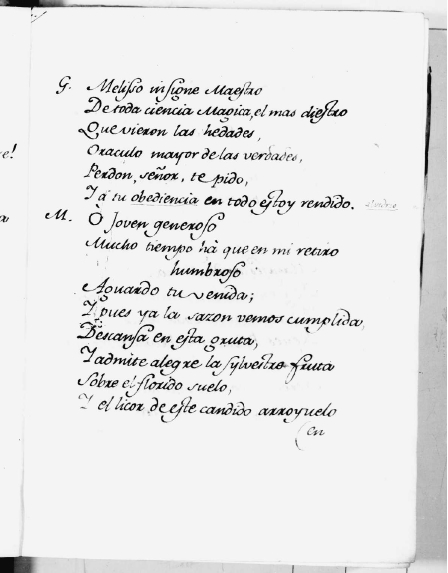 G. Melisso insigne Maestro
De toda ciencia Magica, el mas diestro
Que vieron las hedades,
Oraculo mayor de las verdades,
Perdon, señor, te pido,
Y â tu obediencia en todo estoy rendido.
M. Ò Joven generoso
Mucho tiempo hà que en mi retiro
humbroso
Aguardo tu venida;
Y pues ya la sazon vemos cumplida,
Descansa en esta gruta,
Y admite alegre la sylvestre fruta
Sobre el florido suelo,
Y el licor de este candido arroyuelo
(en